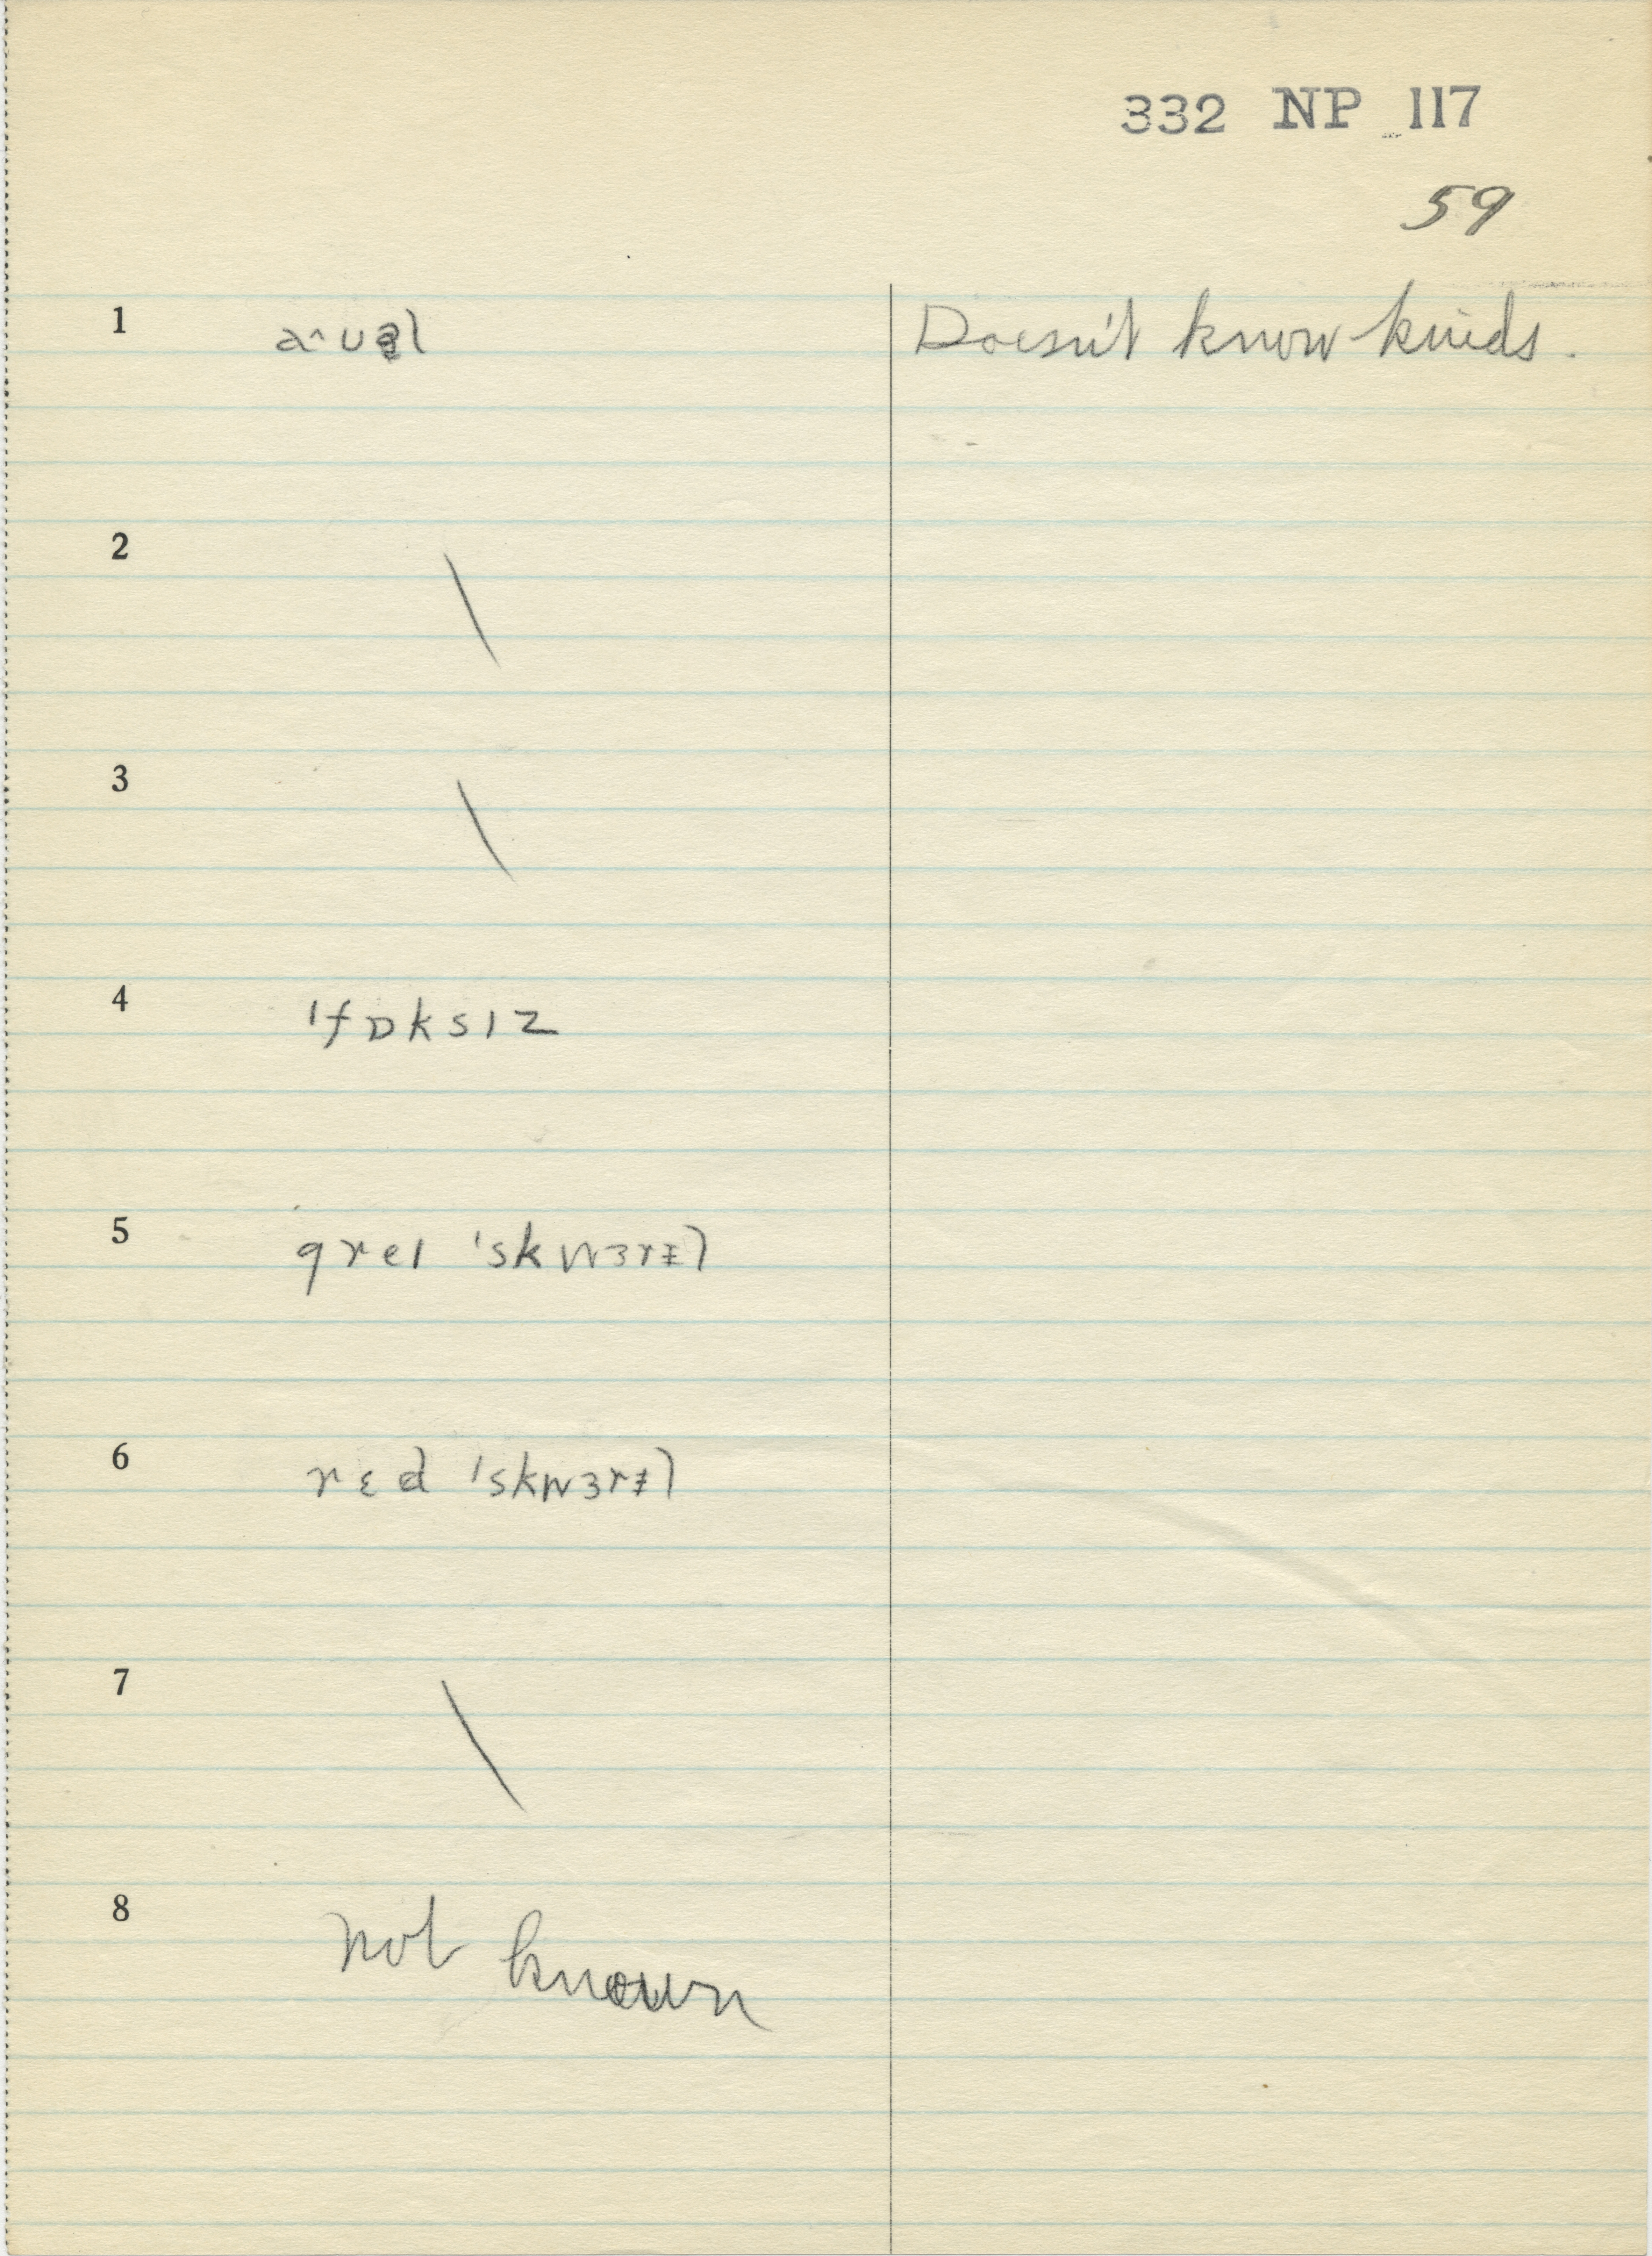 332 NP 117
59
1 aˑᴜəl Doesn't know kinds.
2 \
3 \
4 ˈfɒksɪz
5 greɪ ˈskwɜrɫ̩
6 rɛd ˈskwɜrɫ̩
7 \
8 not known